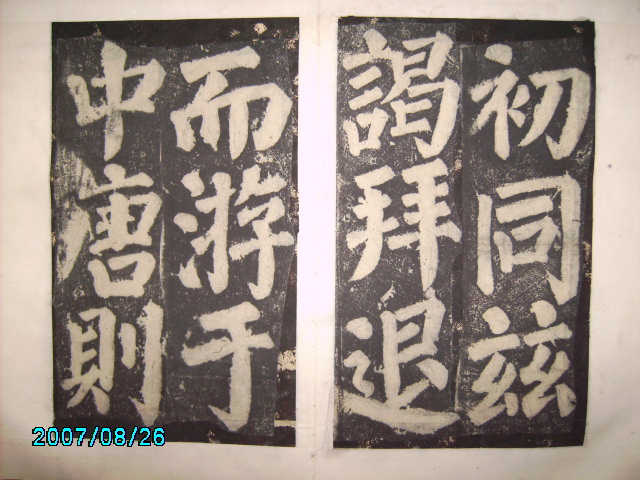 初同茲
謁拜退
而游于
中唐則
2007/08/26